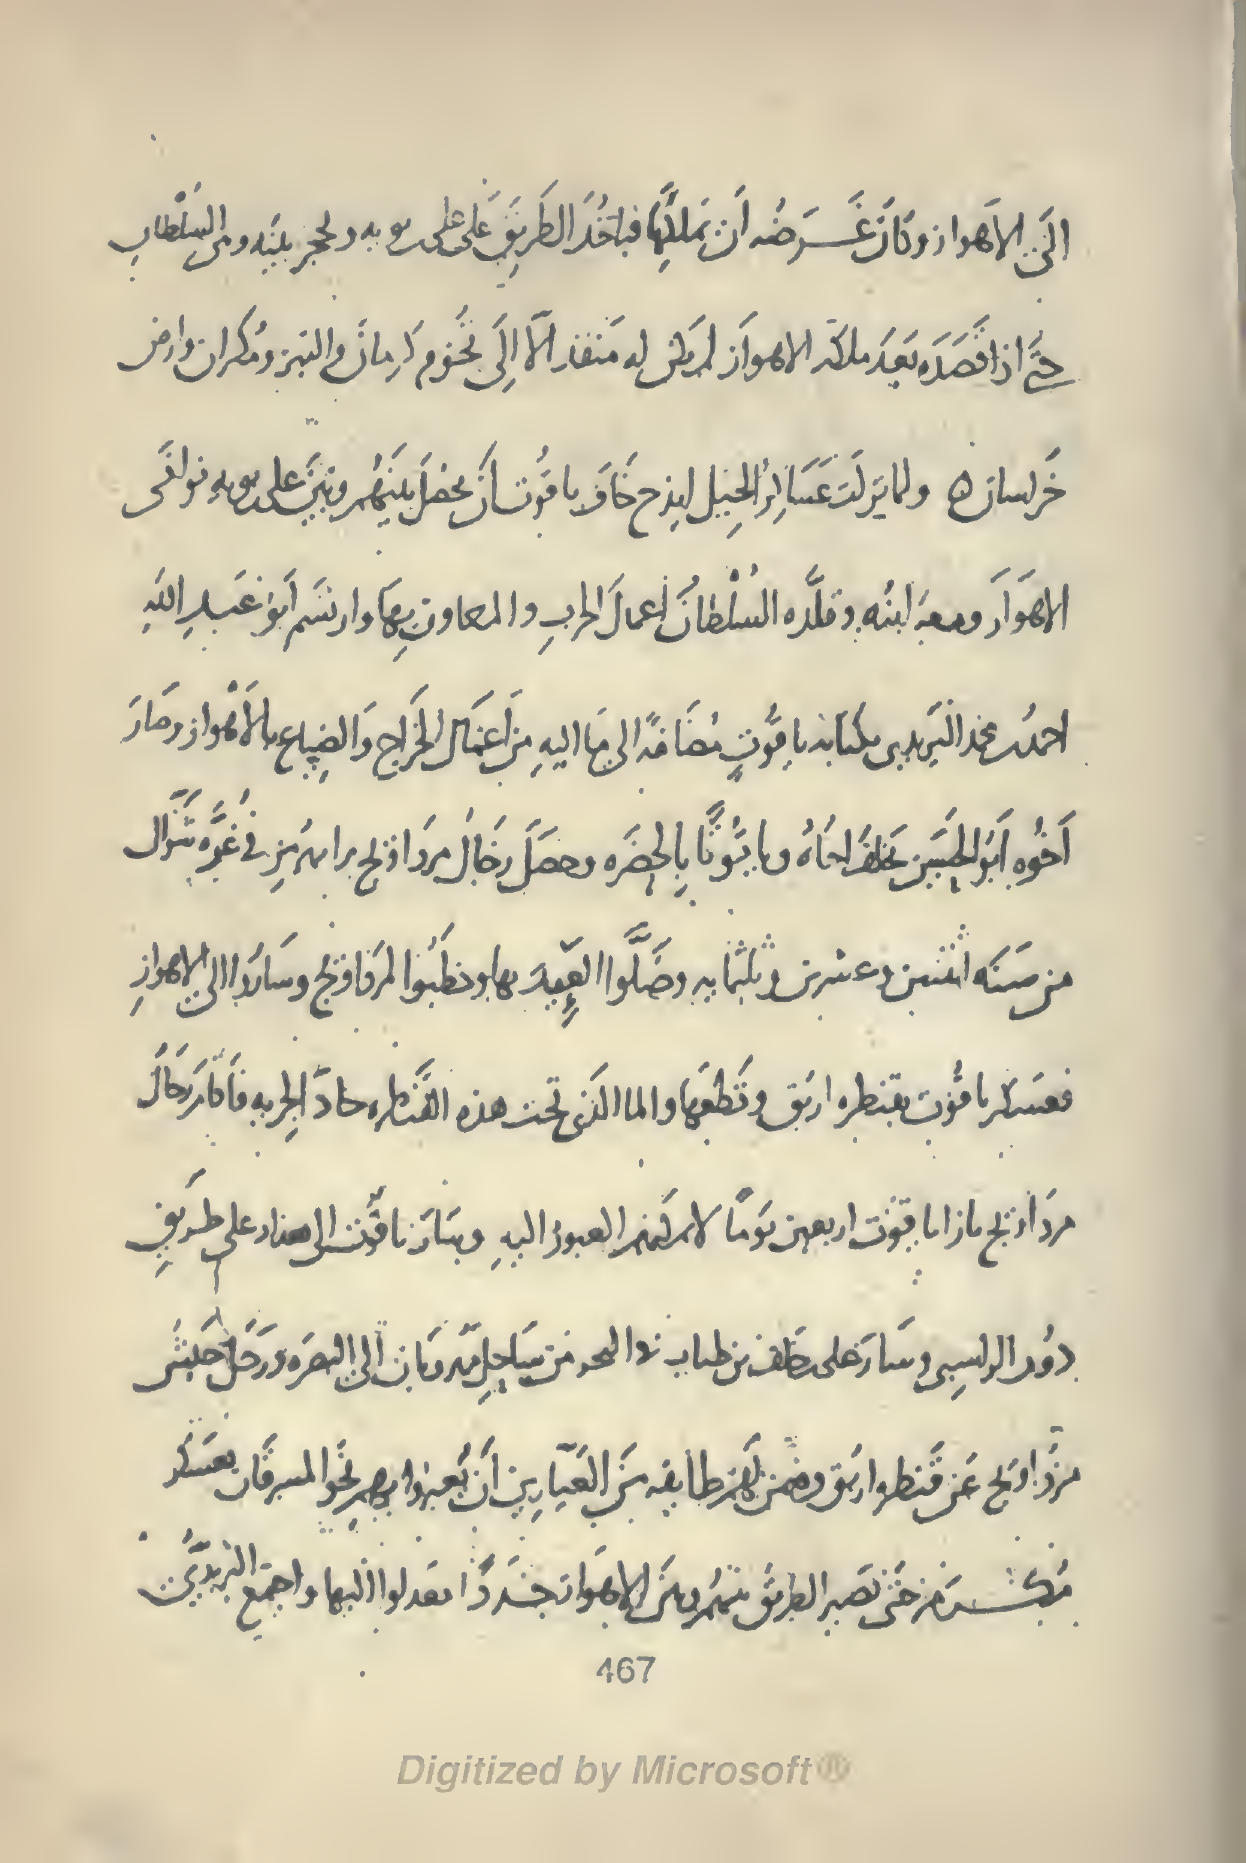 الى الاهواز وكان غرضه ان يملكها فياخذ الطريق على على بن بويه ويحجز بينه وبين السلطان
حتى اذا قصده بعد ملكه الاهواز لم يكن له منفذ الا الى تخوم كرمان والتيز ومكران وارض
خراسان ه ولما نزلت عساكر الجبل ايذج خاف ياقوت ان يحصل بينهم وبين على بن بويه فوافى
الاهواز ومعه ابنه وقلده السلطان اعمال الحرب والمعاون بها وارتسم ابو عبد الله
احمد بن محمد البريدى بكتابه ياقوت مضافة الى ما اليه من اعمال الخراج والضياع بالاهواز وصار
اخوه ابو الحسين يخلف اخاه وياقوتا بالحضره وحصل رجال مرداويج برامهرمز فى غره شوال
من سنه اثنتين وعشرين وثلثمايه وصلوا العيد بها وخطبوا لمرداويج وساروا الى الاهواز
فعسكر ياقوت بقنطره اربق وقطعها والما الذى تحت هذه القنطره حاد الجريه فاقام رجال
مرداويج بازا ياقوت اربعين يوما لا يمكنهم العبور اليه وسار ياقوت الى على طريق
دور الراسبى وسار على بن خلف بن طياب من ساحل مهروبان الى البصره ورحل جيش
مرداويج عن قنطره اربق وضمن لهم طايفه من العيارين ان يعبروا بهم نحو المسرقان بعسكر
مكرم حتى يصير الطريق بينهم وبين الاهواز جددا يعدلوا اليها واجتمع البريديين
467
Digitized by Microsoft®